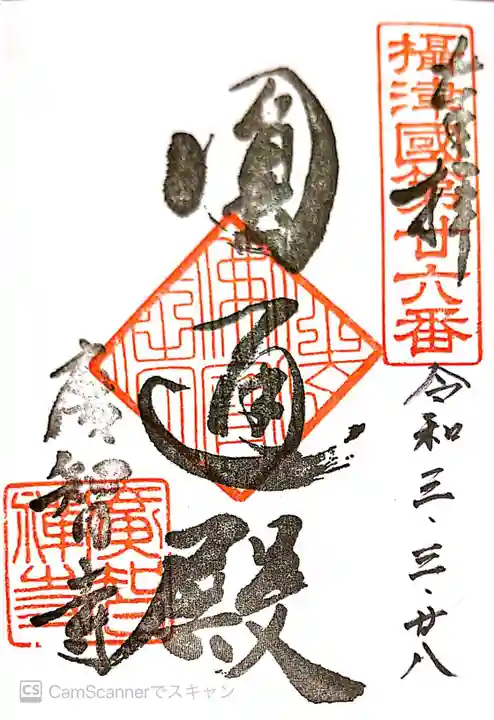 奉拝
攝津國第廿六番
令和三、三、廿八
圓通殿
廣智寺
廣智禅寺
CS CamScannerでスキャン